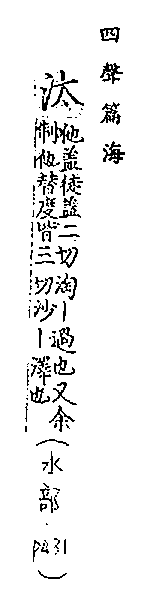 四聲篇海
汰他蓋徒蓋二切淘｜過也又余
制他替度皆三切沙｜澤也
(水部．P431)